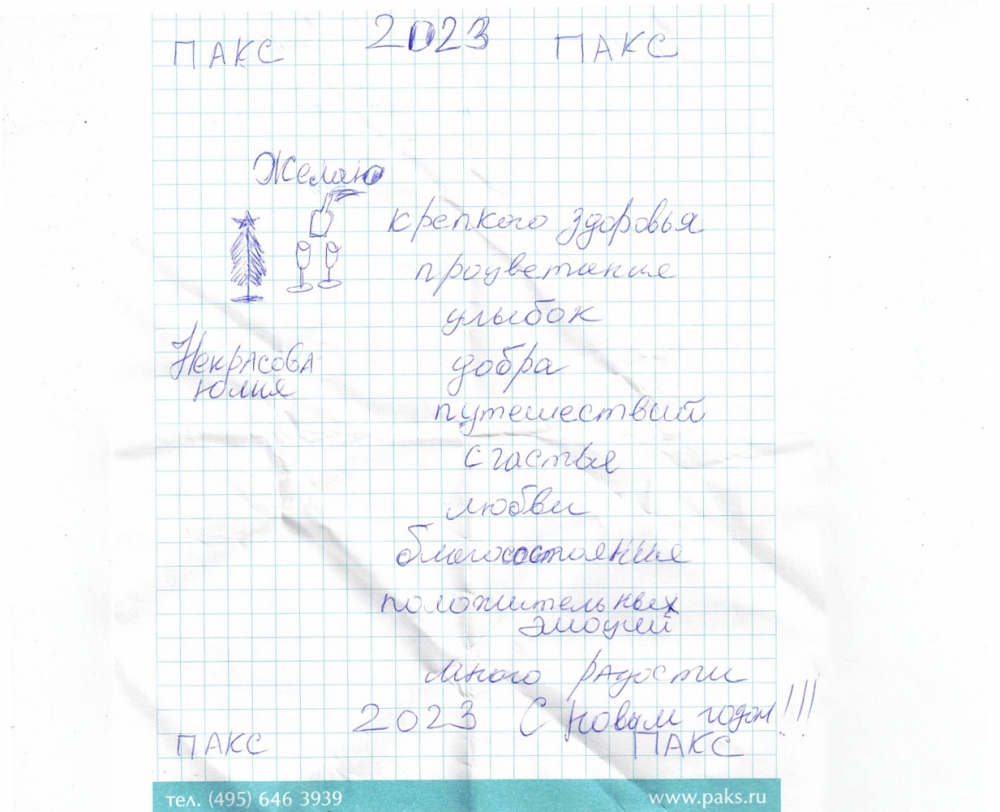 ПАКС 2023 ПАКС
Желаю
крепкого здоровья
процветания
улыбок
Некрасова
Юлия
добра
путешествий
счастья
любви
благосостояния
положительных
эмоций
много радости
2023 С новым годом!!!
ПАКС ПАКС
тел. (495) 646 3939 www.paks.ru